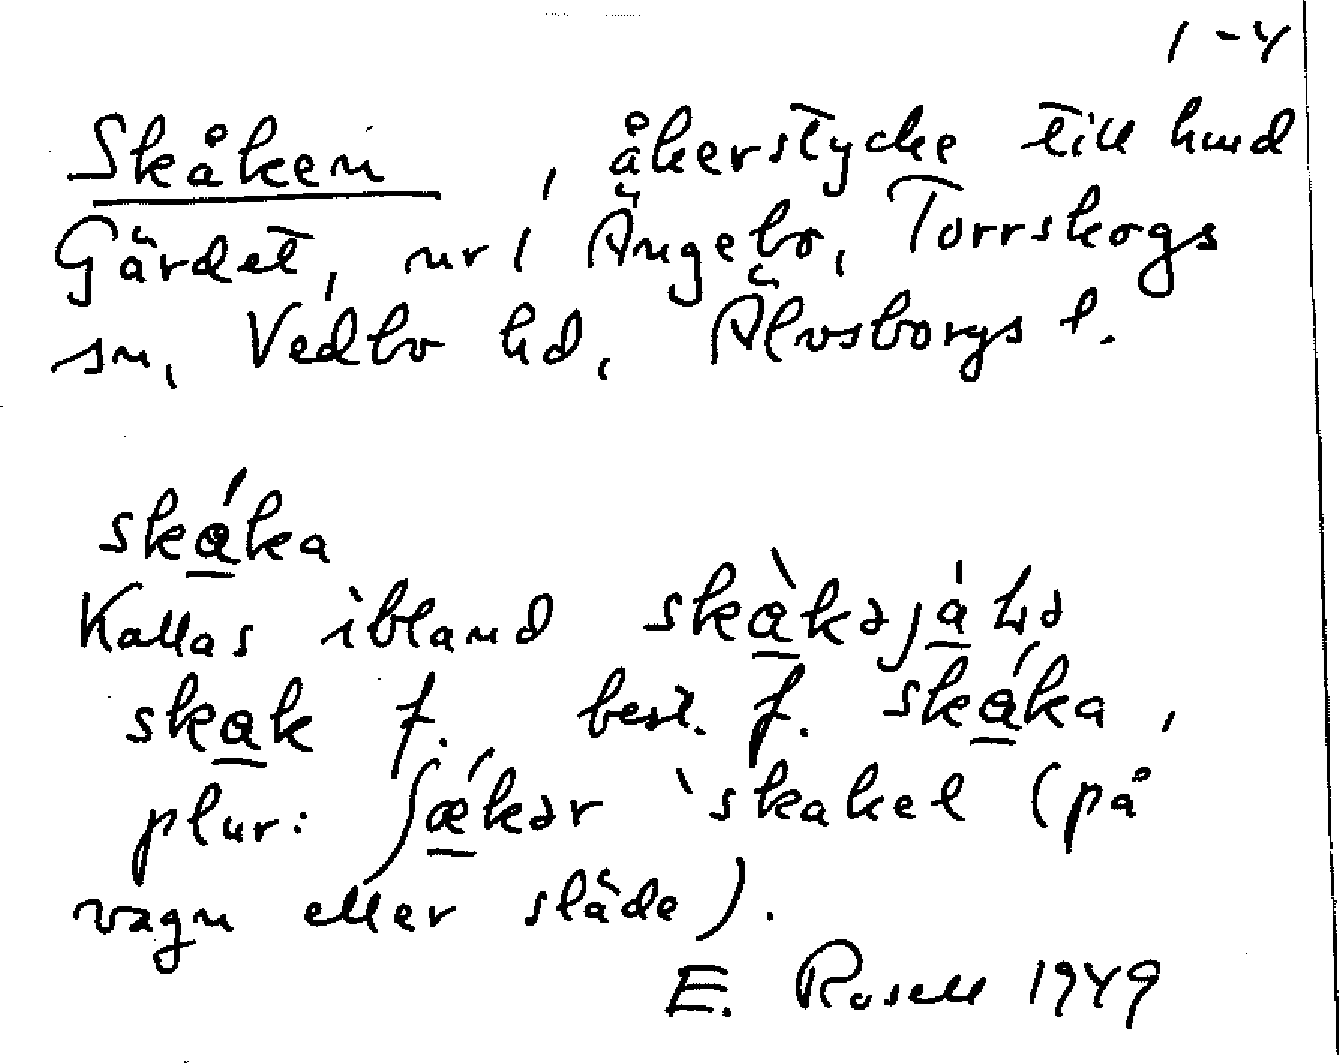 1-4
Skåken, åkerstycke till hmd
Gärdet, nr 1 Ängebo, Torrskogs
sn, Vedbo hd, Älvsborgs l.
skáka
Kallas ibland
skak f. best. f. skáka,
plur: ʃǽkər 'skakel (på
vagn eller släde).
E. Rosell 1949